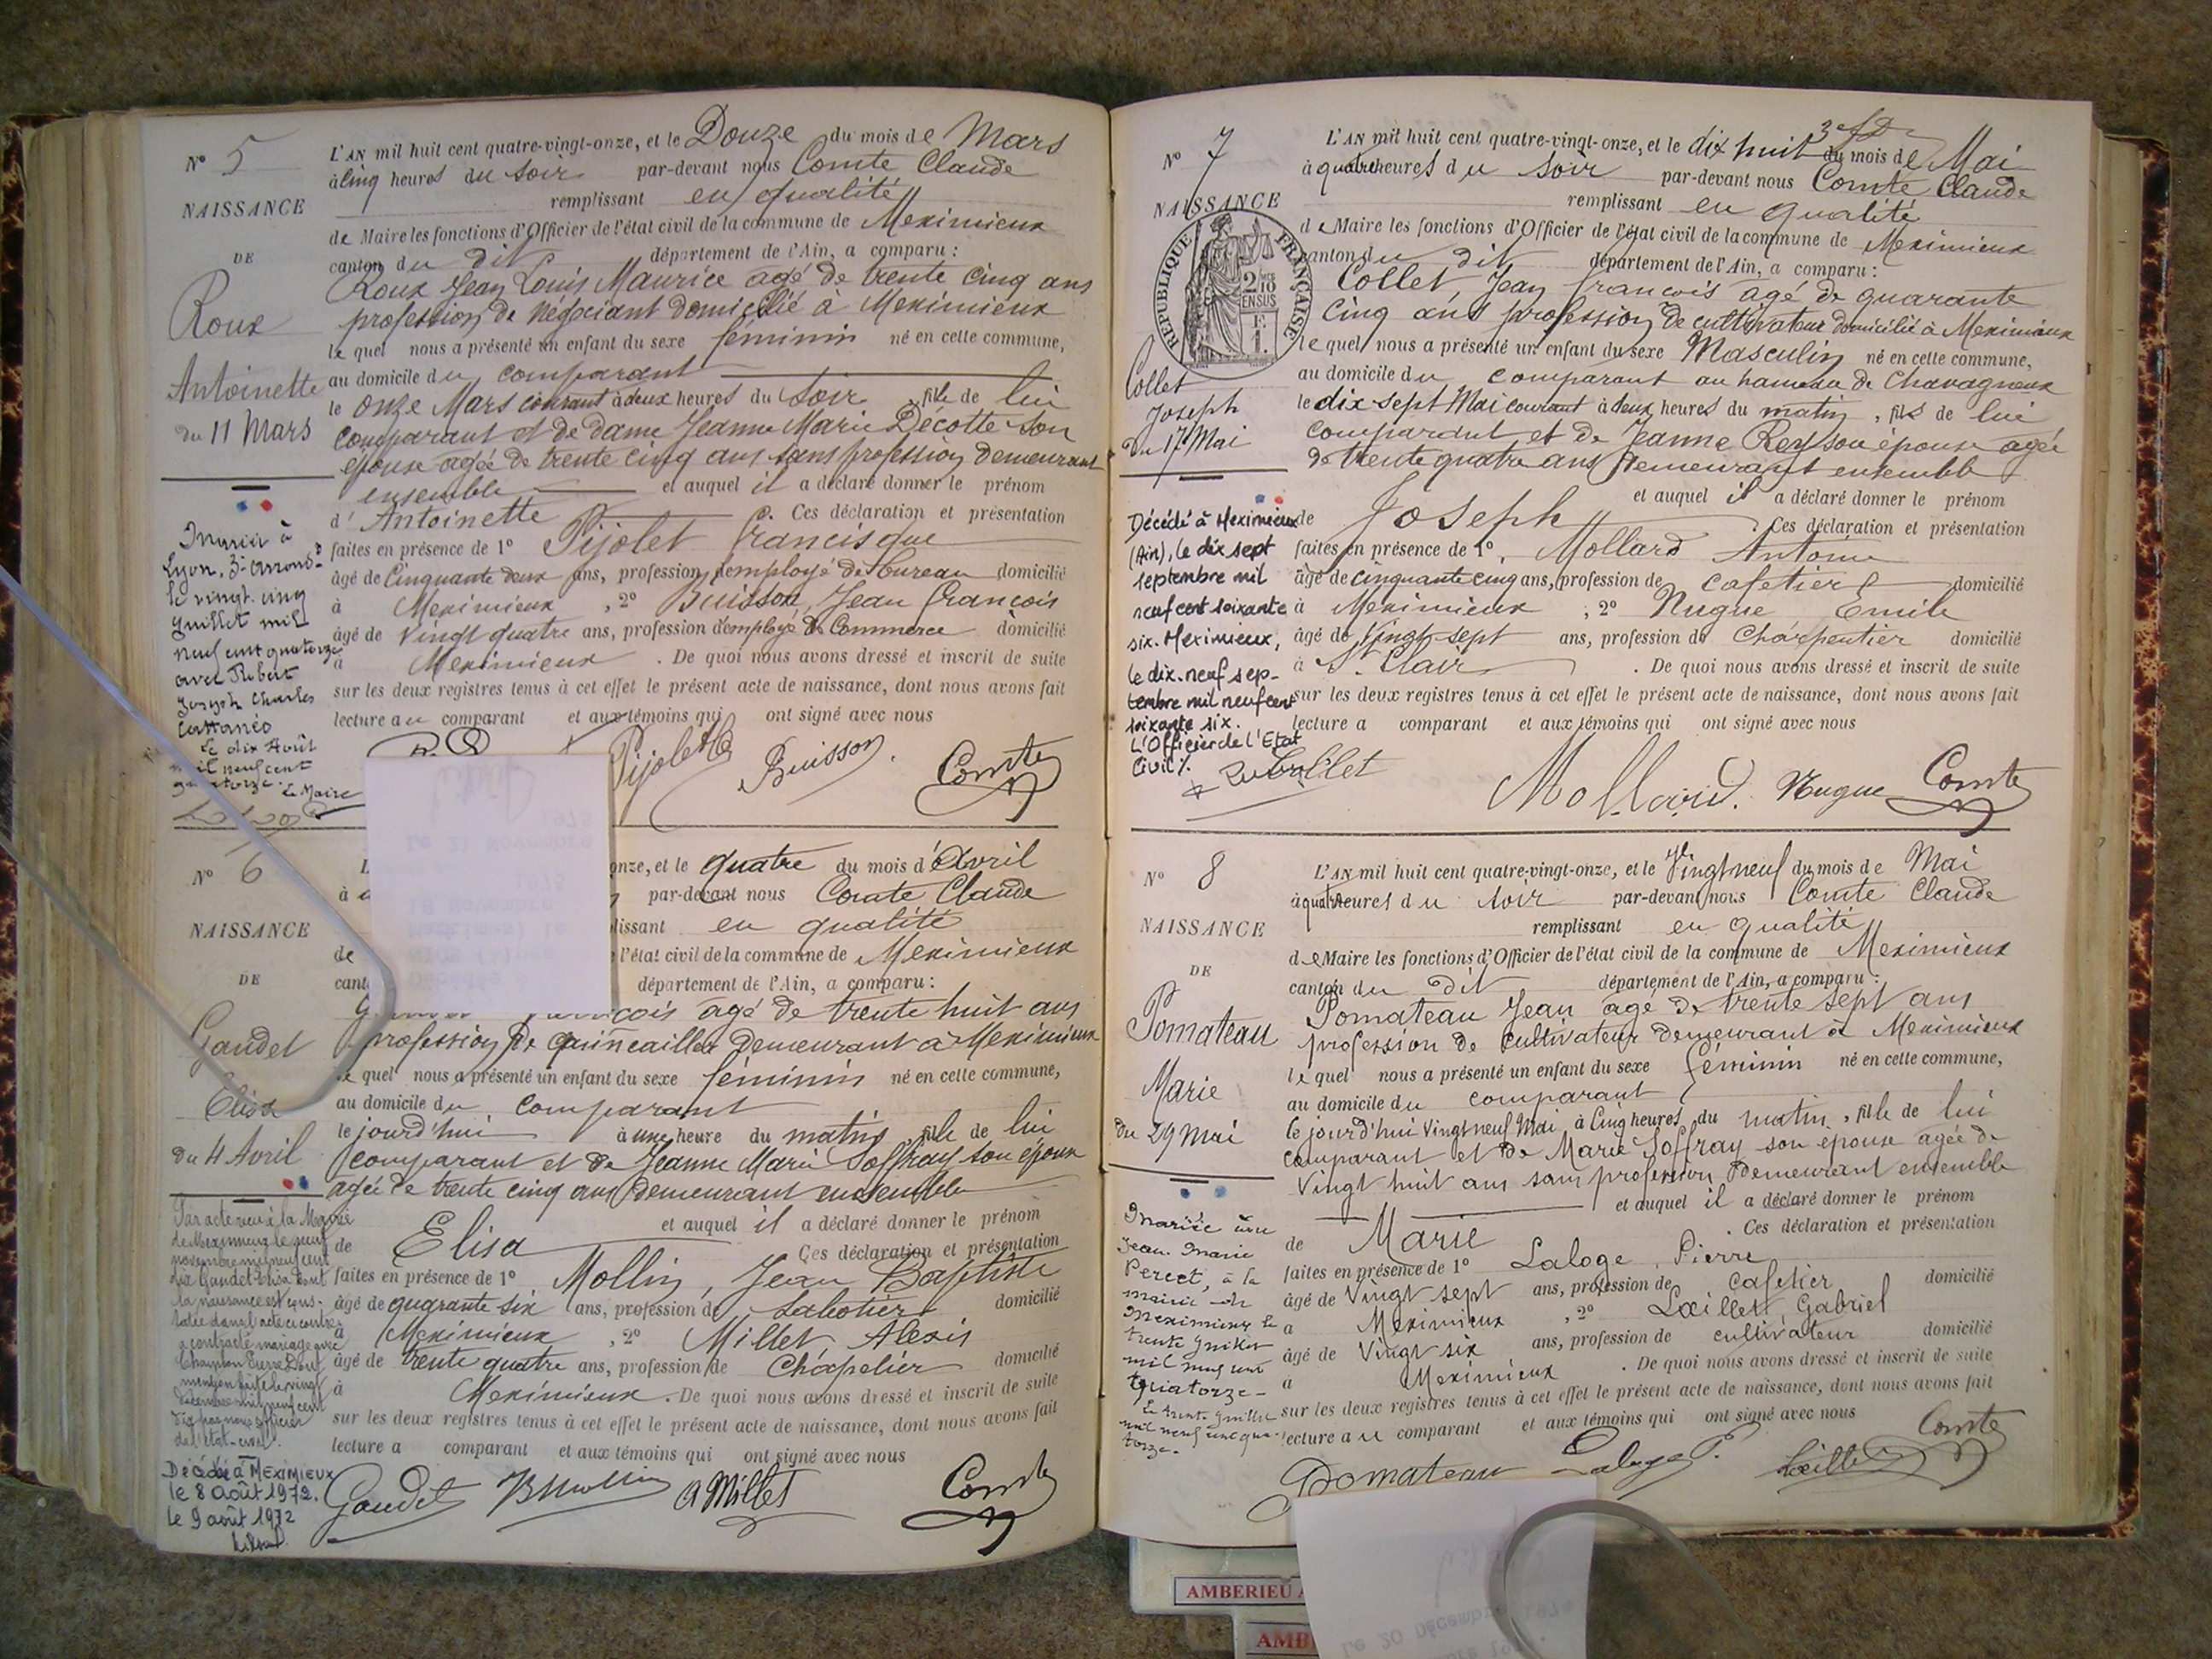 N° 5
NAISSANCE
DE
Roux
Antoinette
du 11 Mars
L'AN mil huit cent quatre-vingt-onze, et le Douze du mois de Mars
à cinq heures du soir par-devant nous Comte Claude
remplissant en qualité
de Maire les fonctions d'Officier de l'état civil de la commune de Meximieux
canton du dit département de l'Ain, a comparu :
Roux Jean Louis Maurice agé de trente cinq ans
profession de Négociant domicilié à Meximieux
le quel nous a présenté un enfant du sexe féminin né en cette commune,
au domicile du comparant
le onze Mars courant à deux heures du soir, fille de lui
comparant et de dame Jeanne Marie Décotte son
épouse agée de trente cinq ans sans profession demeurant
ensemble et auquel il a déclaré donner le prénom
d'Antoinette. Ces déclaration et présentation
faites en présence de 1° Pijolet Francisque
âgé de Cinquante deux ans, profession d'employé de bureau domicilié
à Meximieux, 2° Buisson, Jean François
âgé de Vingt quatre ans, profession d'employé de Commerce domicilié
à Meximieux. De quoi nous avons dressé et inscrit de suite
sur les deux registres tenus à cet effet le présent acte de naissance, dont nous avons fait
lecture au comparant et aux témoins qui ont signé avec nous
Pijolet Buisson Comte
Marié à
Lyon, 3e arrond.t
le vingt cinq
Juillet mil
neuf cent quatorze
avec Robert
Joseph Charles
Cattanéo
Le dix Août
mil neuf cent
quatorze.
Le Maire
N° 6
NAISSANCE
DE
Gaudet
Elisa
du 4 Avril
onze, et le quatre du mois d'Avril
à par-devant nous Comte Claude
lissant en qualité
de l'état civil de la commune de Meximieux
cant département de l'Ain, a comparu :
çois agé de trente huit ans
profession de quincailler demeurant à Meximieux
le quel nous a présenté un enfant du sexe féminin né en cette commune,
au domicile du comparant
le jourd'hui à une heure du matin fille de lui
comparant et de Jeanne Marie Soffray son épouse
agée de trente cinq ans demeurant ensemble
et auquel il a déclaré donner le prénom
de Elisa Ces déclaration et présentation
faites en présence de 1° Mollin, Jean Baptiste
âgé de quarante six ans, profession de Sabotier domicilié
à Meximieux, 2° Millet, Alexis
âgé de trente quatre ans, profession de Chapelier domicilié
à Meximieux. De quoi nous avons dressé et inscrit de suite
sur les deux registres tenus à cet effet le présent acte de naissance, dont nous avons fait
lecture a comparant et aux témoins qui ont signé avec nous
Gaudet B Mollin A Millet Comte
Par acte reçu à la Mairie
de Meximieux le neuf
novembre mil neuf cent
dix Gaudet Elisa dont
la naissance est cons-
tatée dans l'acte ci contre
a contracté mariage avec
Champion Pierre Dont
mention faite le vingt
Décembre mil neuf cent
dix par nous officier
de l'état-civil.
Décédée à MEXIMIEUX
le 8 août 1972.
le 9 août 1972
N° 7
NAISSANCE
REPUBLIQUE FRANÇAISE
2/10
EN SUS
Collet
Joseph
Du 17 Mai
L'AN mil huit cent quatre-vingt-onze, et le dix huit du mois de Mai
à quatre heures du soir par-devant nous Comte Claude
remplissant en qualité
de Maire les fonctions d'Officier de l'état civil de la commune de Meximieux
canton du dit département de l'Ain, a comparu :
Collet, Jean François agé de quarante
Cinq ans profession de cultivateur domicilié à Meximieux
le quel nous a présenté un enfant du sexe Masculin né en cette commune,
au domicile du comparant au hameau de Chavagneux
le dix sept Mai courant à deux heures du matin, fils de lui
comparant et de Jeanne Rey son épouse agée
de trente quatre ans demeurant ensemble
et auquel il a déclaré donner le prénom
de Joseph. Ces déclaration et présentation
faites en présence de 1°, Mollard Antoine
âgé de cinquante cinq ans, profession de cafetier domicilié
à Meximieux ; 2° Nugue Emile
âgé de Vingt sept ans, profession de Charpentier domicilié
à St Clair. De quoi nous avons dressé et inscrit de suite
sur les deux registres tenus à cet effet le présent acte de naissance, dont nous avons fait
lecture a comparant et aux témoins qui ont signé avec nous
Collet Mollard. Nugue Comte
Décédé à Meximieux
(Ain), le dix sept
septembre mil
neuf cent soixante
six. Meximieux,
le dix-neuf sep-
tembre mil neuf cent
soixante six.
L'Officier de l'Etat
Civil %.
N° 8
NAISSANCE
DE
Pomateau
Marie
du 29 Mai
L'AN mil huit cent quatre-vingt-onze, et le Vingt neuf du mois de Mai
à quatre heures du soir par-devant nous Comte Claude
remplissant en qualité
de Maire les fonctions d'Officier de l'état civil de la commune de Meximieux
canton du dit département de l'Ain, a comparu :
Pomateau Jean agé de trente sept ans
profession de cultivateur demeurant à Meximieux
le quel nous a présenté un enfant du sexe féminin né en cette commune,
au domicile du comparant
le jourd'hui Vingt neuf Mai à Cinq heures du matin, fille de lui
comparant et de Marie Soffray son épouse agée de
Vingt huit ans sans profession demeurant ensemble
et auquel il a déclaré donner le prénom
de Marie. Ces déclaration et présentation
faites en présence de 1° Laloge Pierre
âgé de Vingt sept ans, profession de cafetier domicilié
à Meximieux, 2° Loeillet Gabriel
âgé de Vingt six ans, profession de cultivateur domicilié
à Meximieux. De quoi nous avons dressé et inscrit de suite
sur les deux registres tenus à cet effet le présent acte de naissance, dont nous avons fait
lecture au comparant et aux témoins qui ont signé avec nous
Pomateau Laloge P. Loeillet Comte
Mariée avec
Jean Marie
Percet, à la
mairie de
Meximieux le
trente Juillet
mil neuf cent
quatorze-
Le trente Juillet
mil neuf cent qua-
torze-
AMBERIEU
AMB
Le 20 Décembre